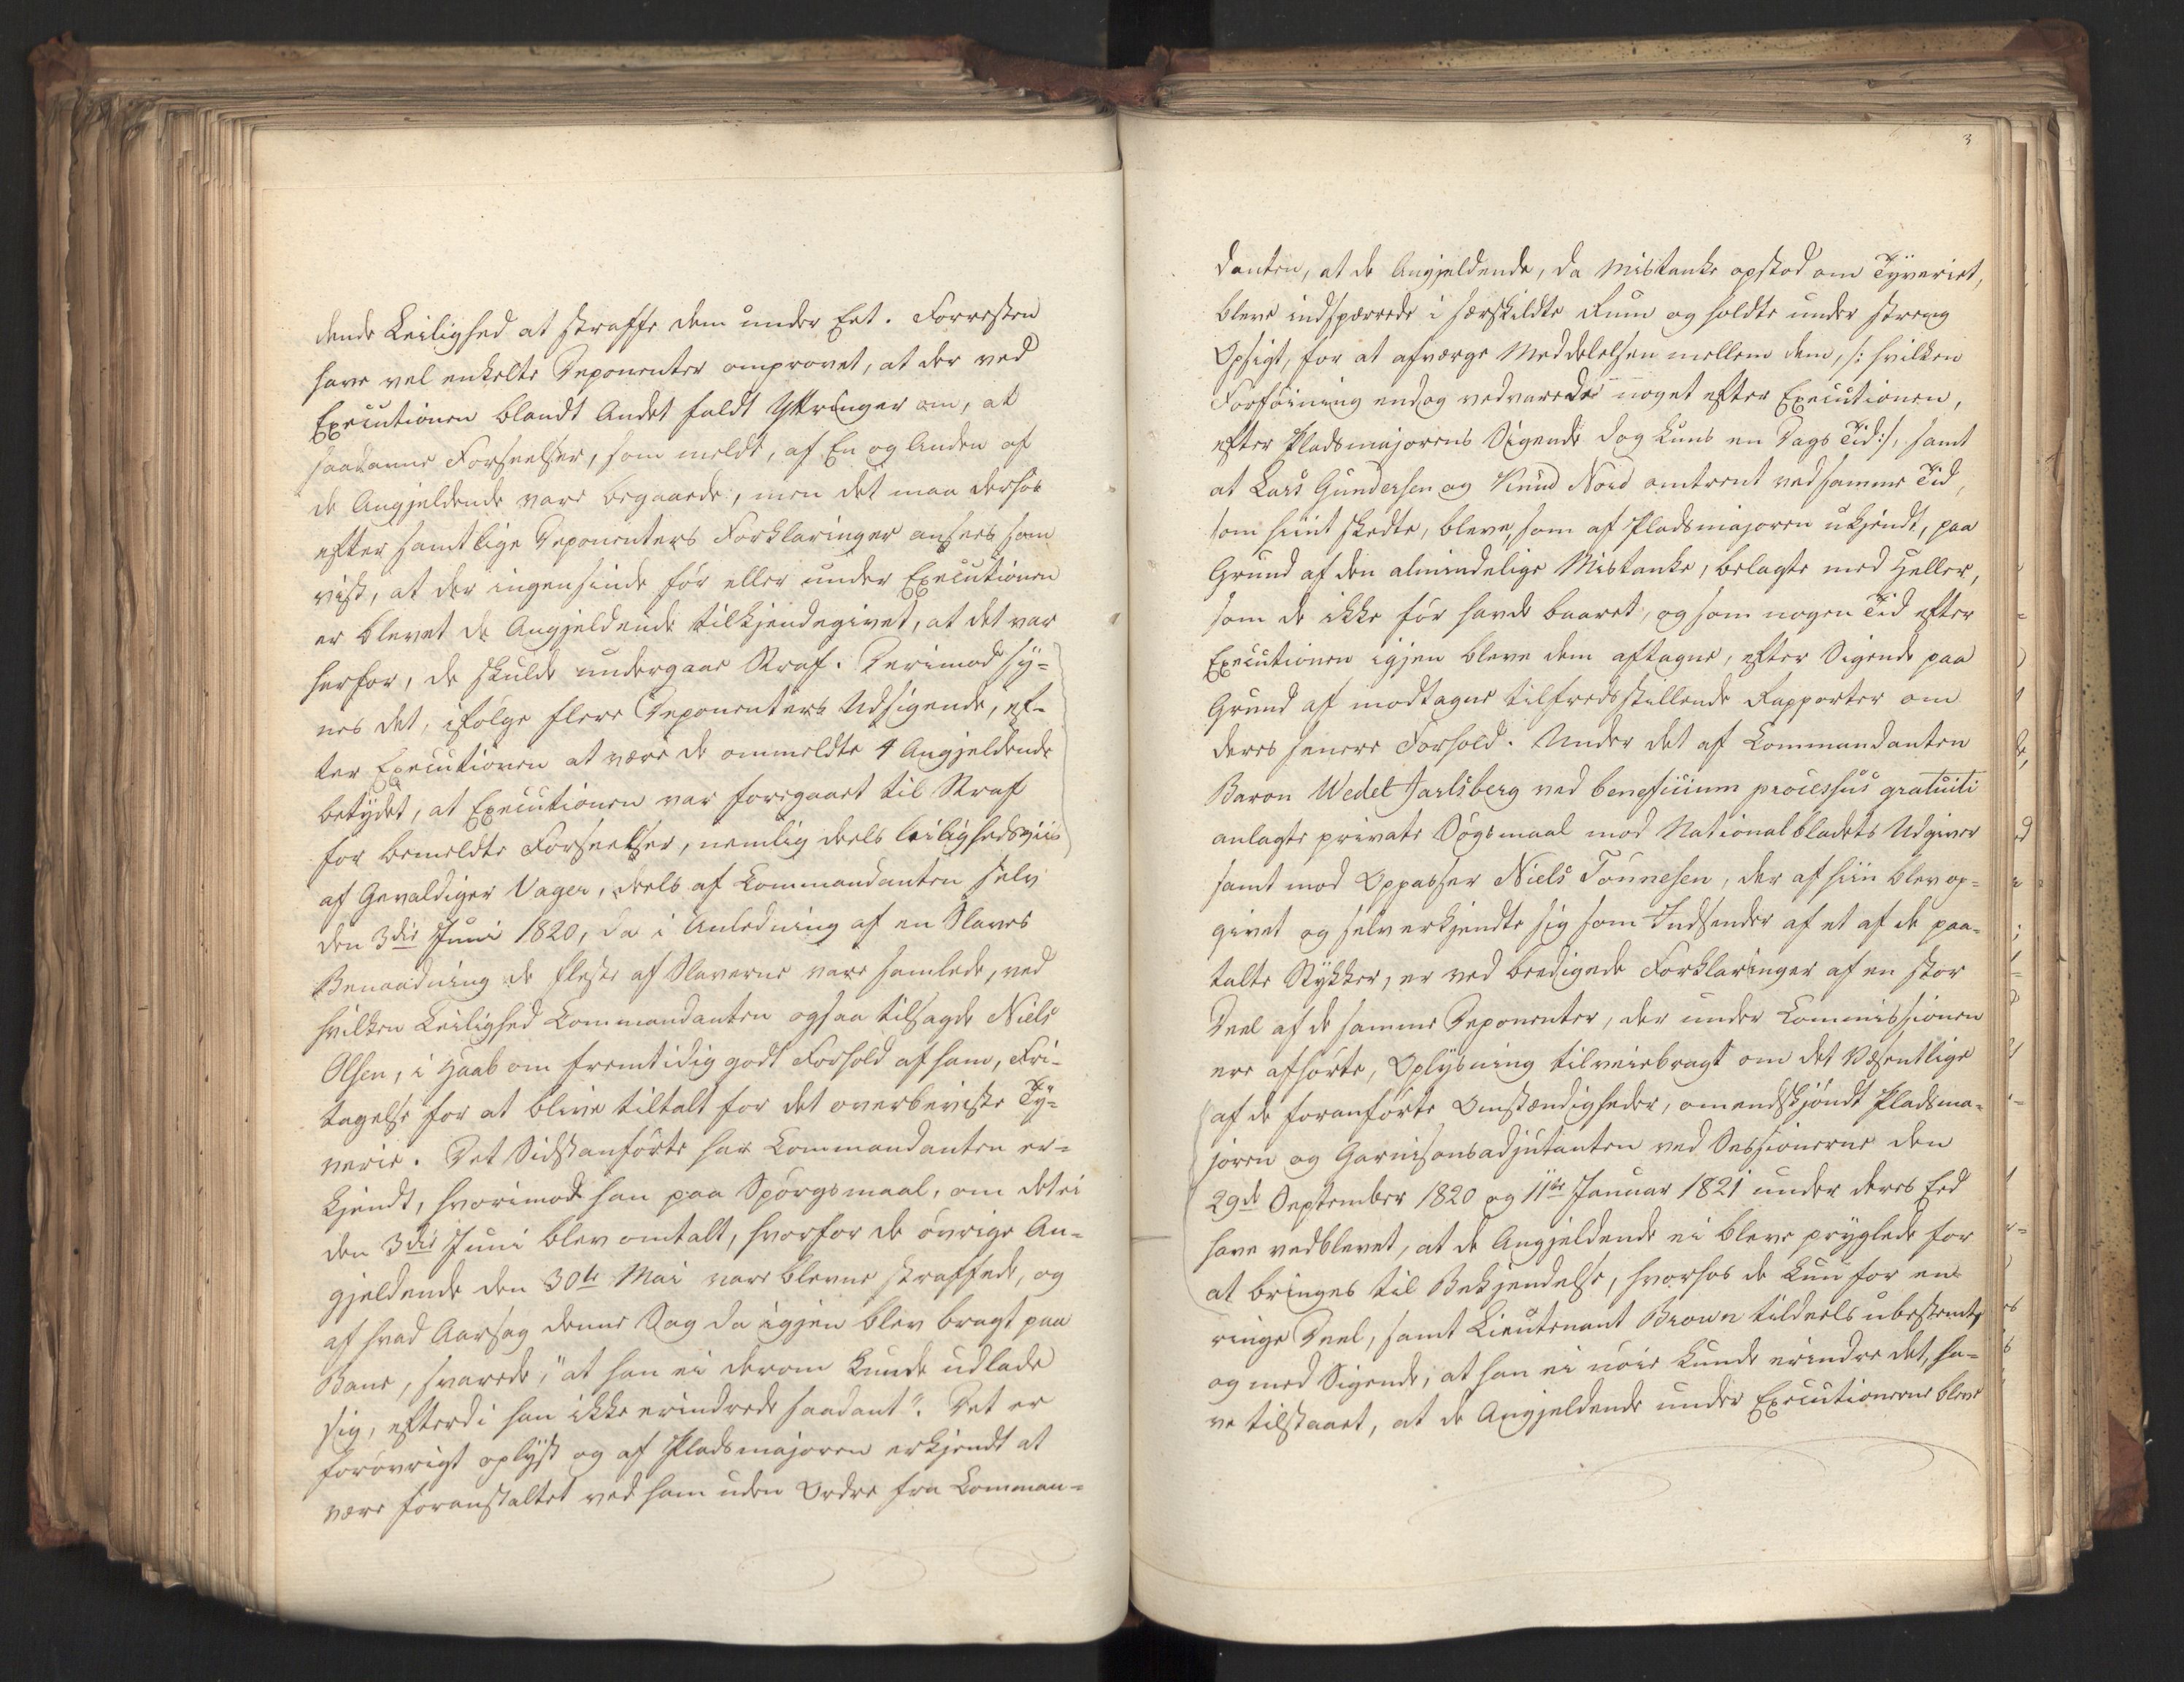 dende Leilighed at straffe dem under Eet. Forresten
have vel enkelte Deponenter omprovet, at der ved
Executionen blandt Andet faldt Yttringer om, at
saadanne Forseelser, som meldt, af En og Anden af
de Angjeldende vare begaaede, men det maa derhos
efter samtlige Deponenters Forklaringer ansees som
vist, at der ingensinde för eller under Executionen
er blevet de Angjeldende tilkjendegivet, at det var
herfor, de skulde undergaae Straf. Derimod sy=
nes det, ifölge flere Deponenters Udsigende, ef=
ter Executionen at være de ommeldte 4 Angjeldende
betydet, at Executionen var foregaaet til Straf
for bemeldte Forseelser, nemlig deels leilighedsviis
af Gevaldiger Vager, deels af Commandanten selv
den 3die Juni 1820, da i Anledning af en Slaves
Benaadning de fleste af Slaverne vare samlede, ved
hvilken Leilighed Commandanten ogsaa tilsagde Niels
Olsen, i Haab om fremtidig godt Forhold af ham, Fri=
tagelse for at blive tiltalt for det overbeviste Ty=
verie. Det Sidstanförte har Commandanten er=
kjendt, hvorimod han paa Spörgsmaal, om det ei
den 3die Juni blev omtalt, hvorfor de övrige An=
gjeldende den 30te Mai vare blevne straffede, og
af hvad Aarsag denne Sag da igjen blev bragt paa
Bane, svarede, "at han ei derom kunde udlade
sig, efterdi han ikke erindrede saadant". Det er
forövrigt oplyst og af Pladsmajoren erkjendt at
være foranstaltet ved ham uden Ordre fra Comman=
3
danten, at de Angjeldende, da Mistanke opstod om Tyveriet,
bleve indspærrede i særskildte Rum og holdte under streng
Opsigt, for at afværge Meddelelsen mellem dem, /: hvilken
Forföining endog vedvarede noget efter Executionen,
efter Pladsmajorens Sigende dog kuns en Dags Tid:/, samt
at Lars Gundersen og Knud Noid omtrent ved samme Tid,
som hiint skedte, bleve, som af Pladsmajoren erkjendt, paa
Grund af den almindelige Mistanke, belagte med Heller,
som de ikke för havde baaret, og som nogen Tid efter
Executionen igjen bleve dem aftagne, efter Sigende paa
Grund af modtagne tilfredsstillende Rapporter om
deres senere Forhold. Under det af Commandanten
Baron Wedel Jarlsberg ved beneficium processus gratuiti
anlagte private Sögsmaal mod Nationalbladets Udgiver
samt mod Oppasser Niels Tönnesen, der af hiin blev op=
givet og selv erkjendte sig som Indsender af et af de paa=
talte Stykker, er ved beedigede Forklaringer af en stor
Deel af de samme Deponenter, der under Commissionen
ere afhörte, Oplysning tilveiebragt om det Væsentlige
af de foranförte Omstændigheder, omendskjöndt Pladsma=
joren og Garnisonsadjutanten ved Sessionerne den
29de September 1820 og 11te Januar 1821 under deres Eed
have vedblevet, at de Angjeldende ei bleve pryglede for
at bringes til Bekjendelse, hvorhos de kun for en
ringe Deel, samt Lieutenant Brown tildeels ubestemt,
og med Sigende, at han ei nöie kunde erindre det, ha=
ve tilstaaet, at de Angjeldende under Executionerne bleve